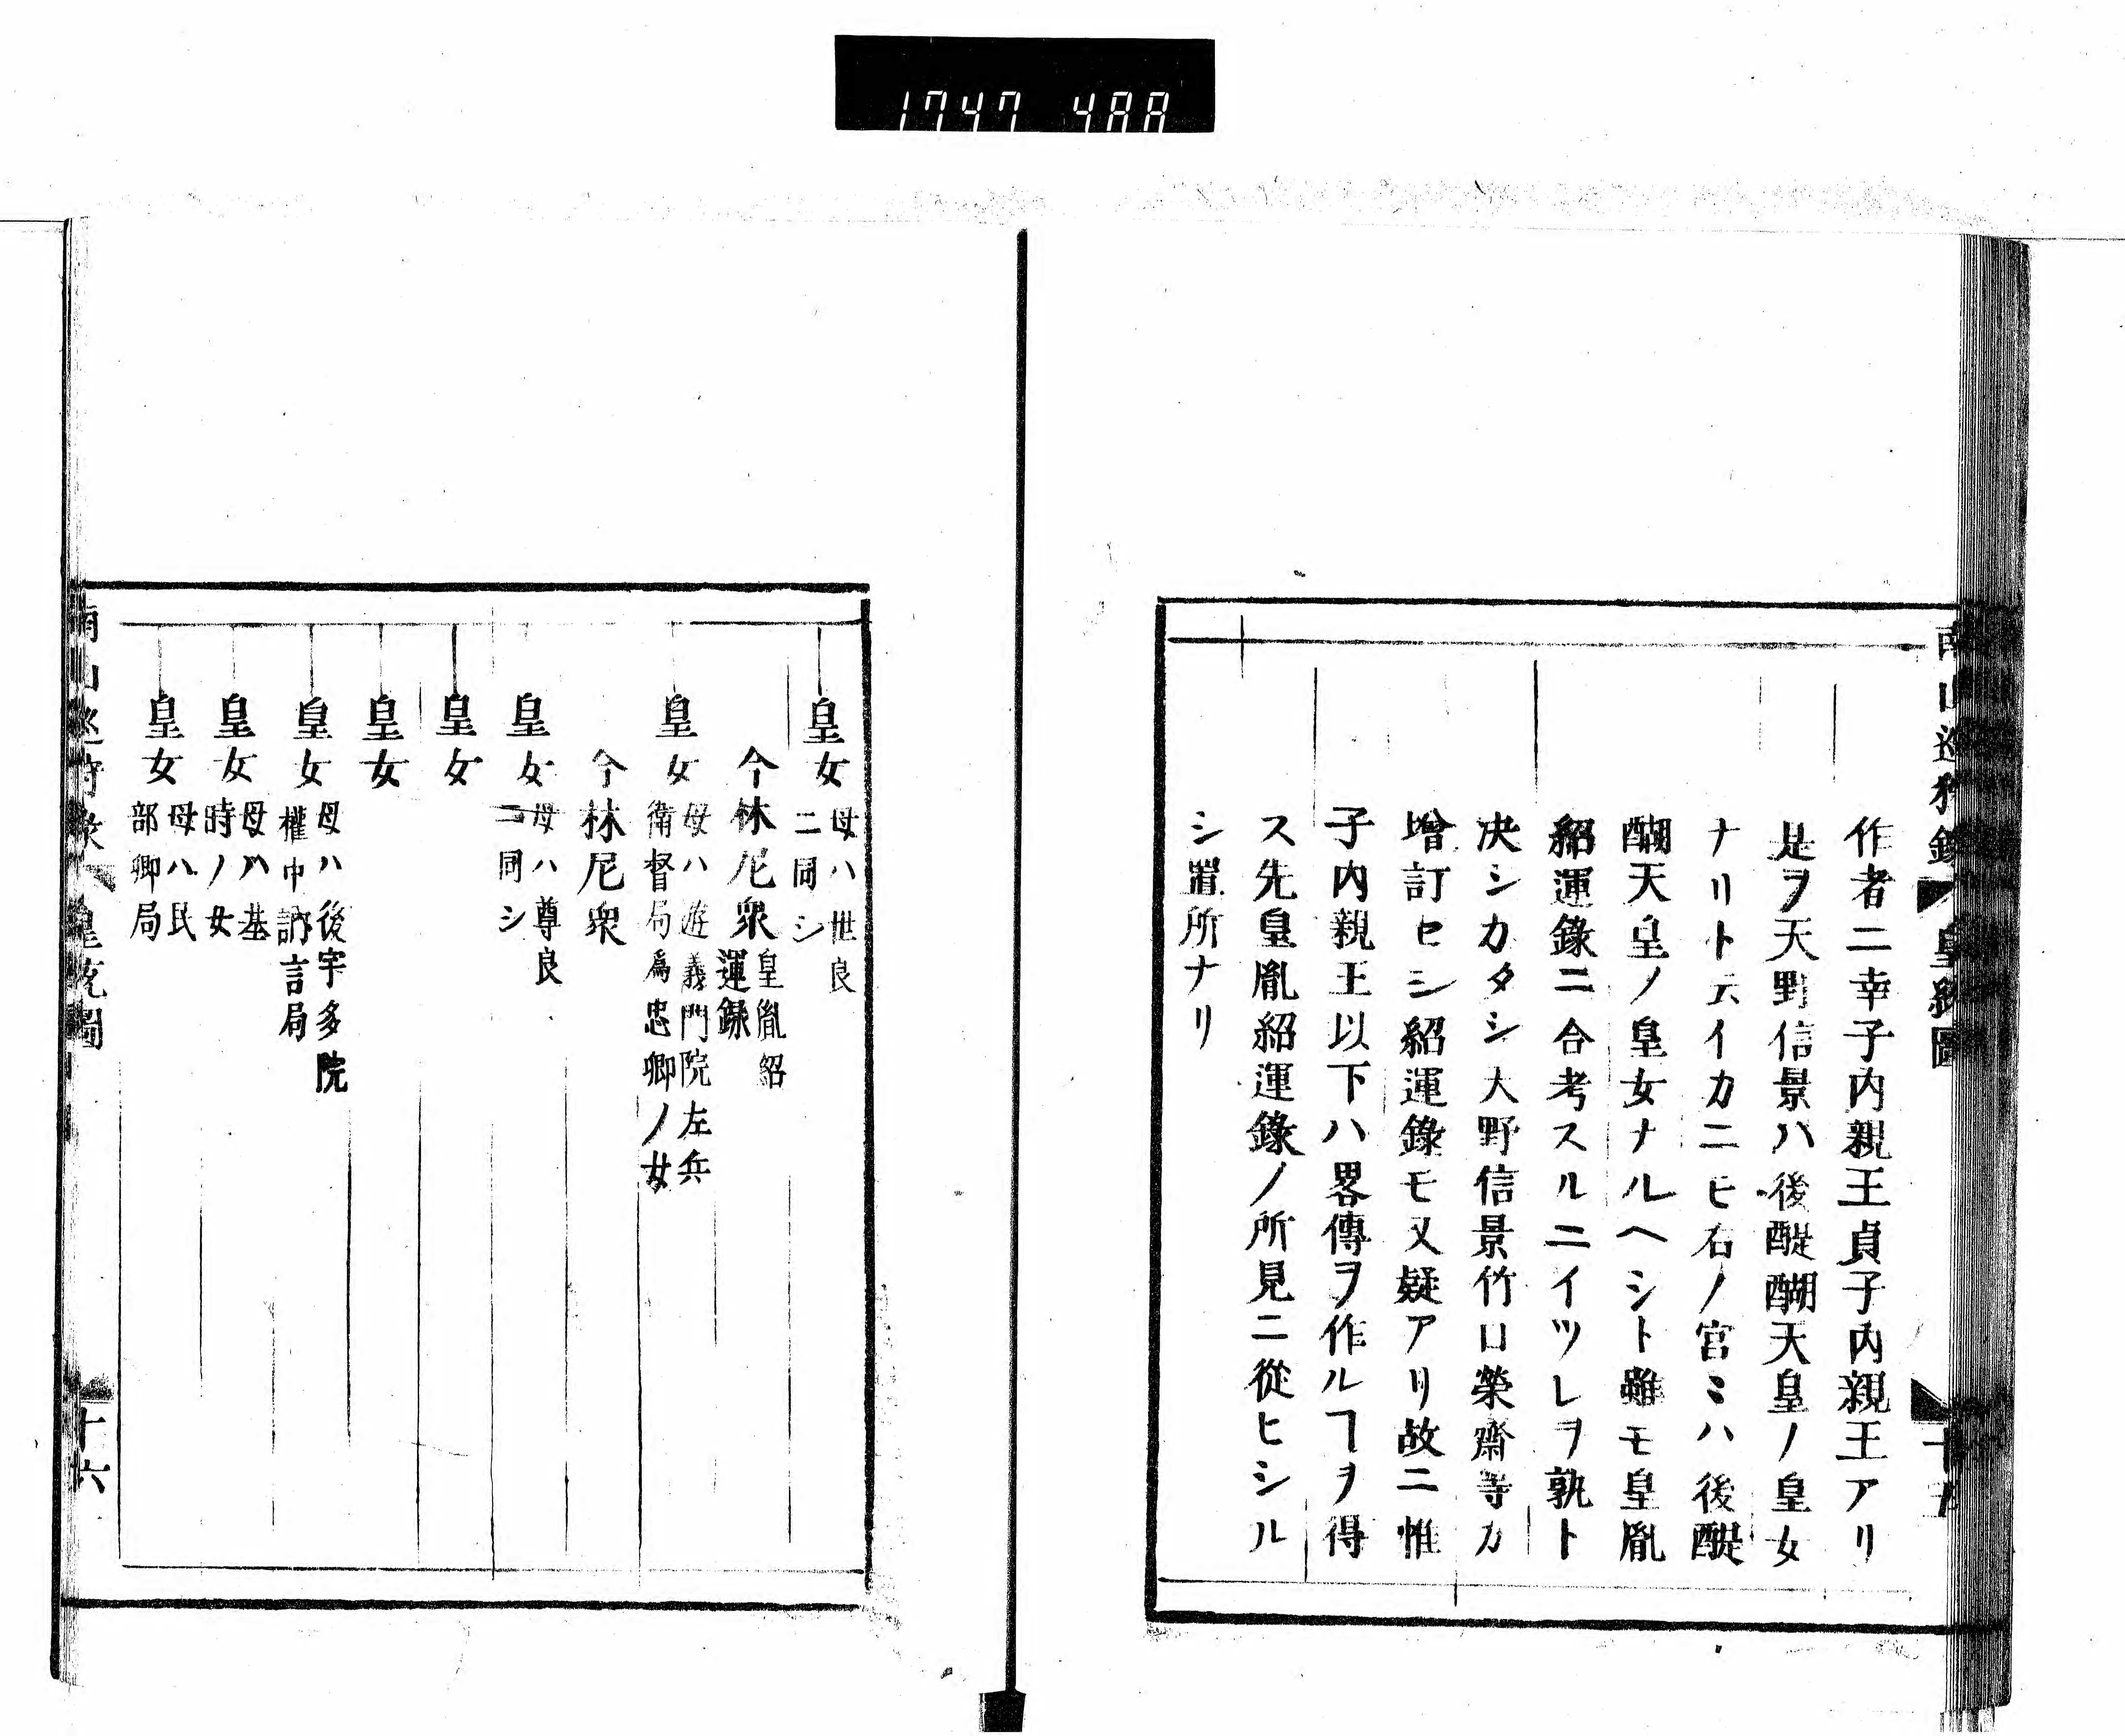 1747 488
作者ニ幸子内親王貞子内親王アリ
是ヲ天野信景ハ後醍醐天皇ノ皇女
ナリト云イカニヒ右ノ宮ミハ後醍
醐天皇ノ皇女ナルヘシト雖モ皇胤
紹運錄ニ合考スルニイツレヲ孰ト
决シカタシ大野信景竹口榮齋等カ
增訂セシ紹運錄モ又疑アリ故ニ惟
子内親王以下ハ畧傳ヲ作ルヿヲ得
ス先皇胤紹運錄ノ所見ニ從ヒシル
シ置所ナリ
皇女
母ハ世良
ニ同シ
今林尼衆
皇胤紹
運錄
皇女
母ハ遊義門院左兵
衛督局爲忠卿ノ女
今林尼衆
皇女
母ハ尊良
ニ同シ
皇女
皇女
皇女
母ハ後宇多院
權中訥言局
皇女
母ハ基
時ノ女
皇女
母ハ民
部卿局
十六